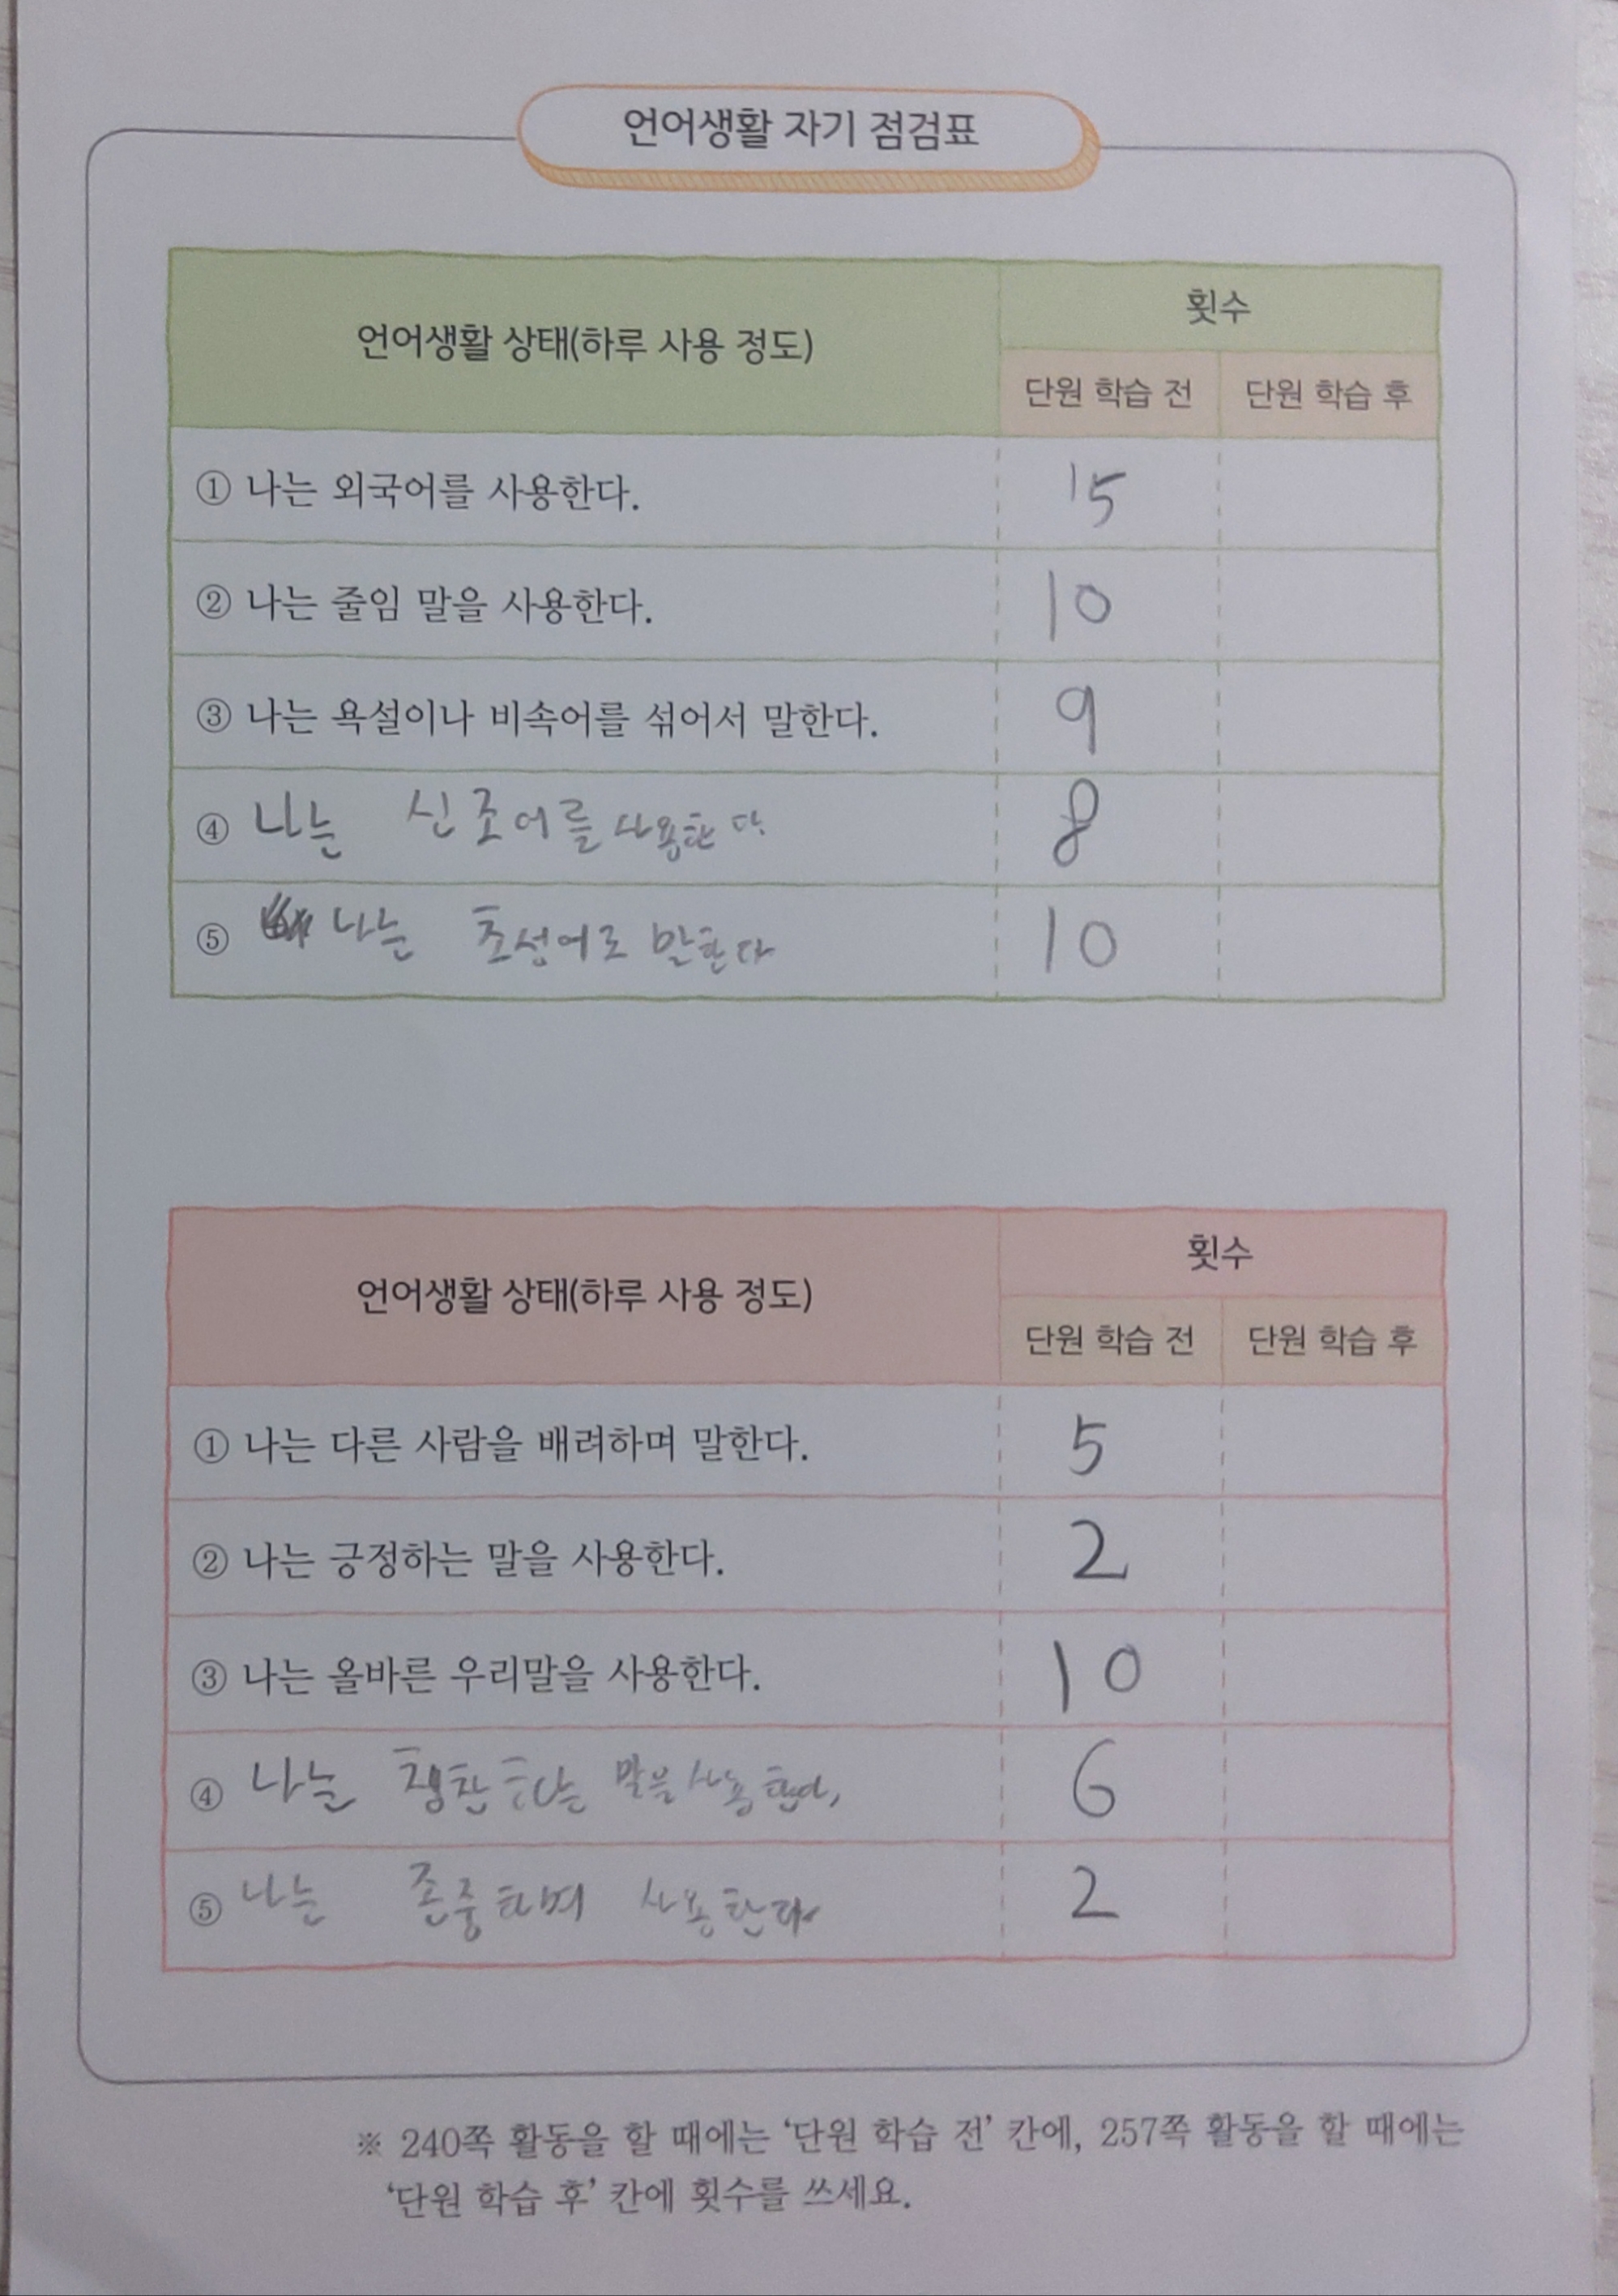 언어생활 자기 점검표
언어생활 상태(하루 사용 정도)
횟수
단원 학습 전 단원 학습 후
① 나는 외국어를 사용한다. 15
② 나는 줄임 말을 사용한다. 10
③ 나는 욕설이나 비속어를 섞어서 말한다. 9
④ 나는 신조어를 사용한다. 8
⑤ 나는 초성어로 말한다 10
언어생활 상태(하루 사용 정도)
횟수
단원 학습 전 단원 학습 후
① 나는 다른 사람을 배려하며 말한다. 5
② 나는 긍정하는 말을 사용한다. 2
③ 나는 올바른 우리말을 사용한다. 10
④ 나는 칭찬하는 말을 사용한다. 6
⑤ 나는 존중하며 사용한다 2
※ 240쪽 활동을 할 때에는 ‘단원 학습 전’ 칸에, 257쪽 활동을 할 때에는
‘단원 학습 후’ 칸에 횟수를 쓰세요.